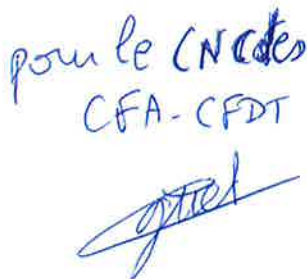 pour le CNC des
CFA-CFDT